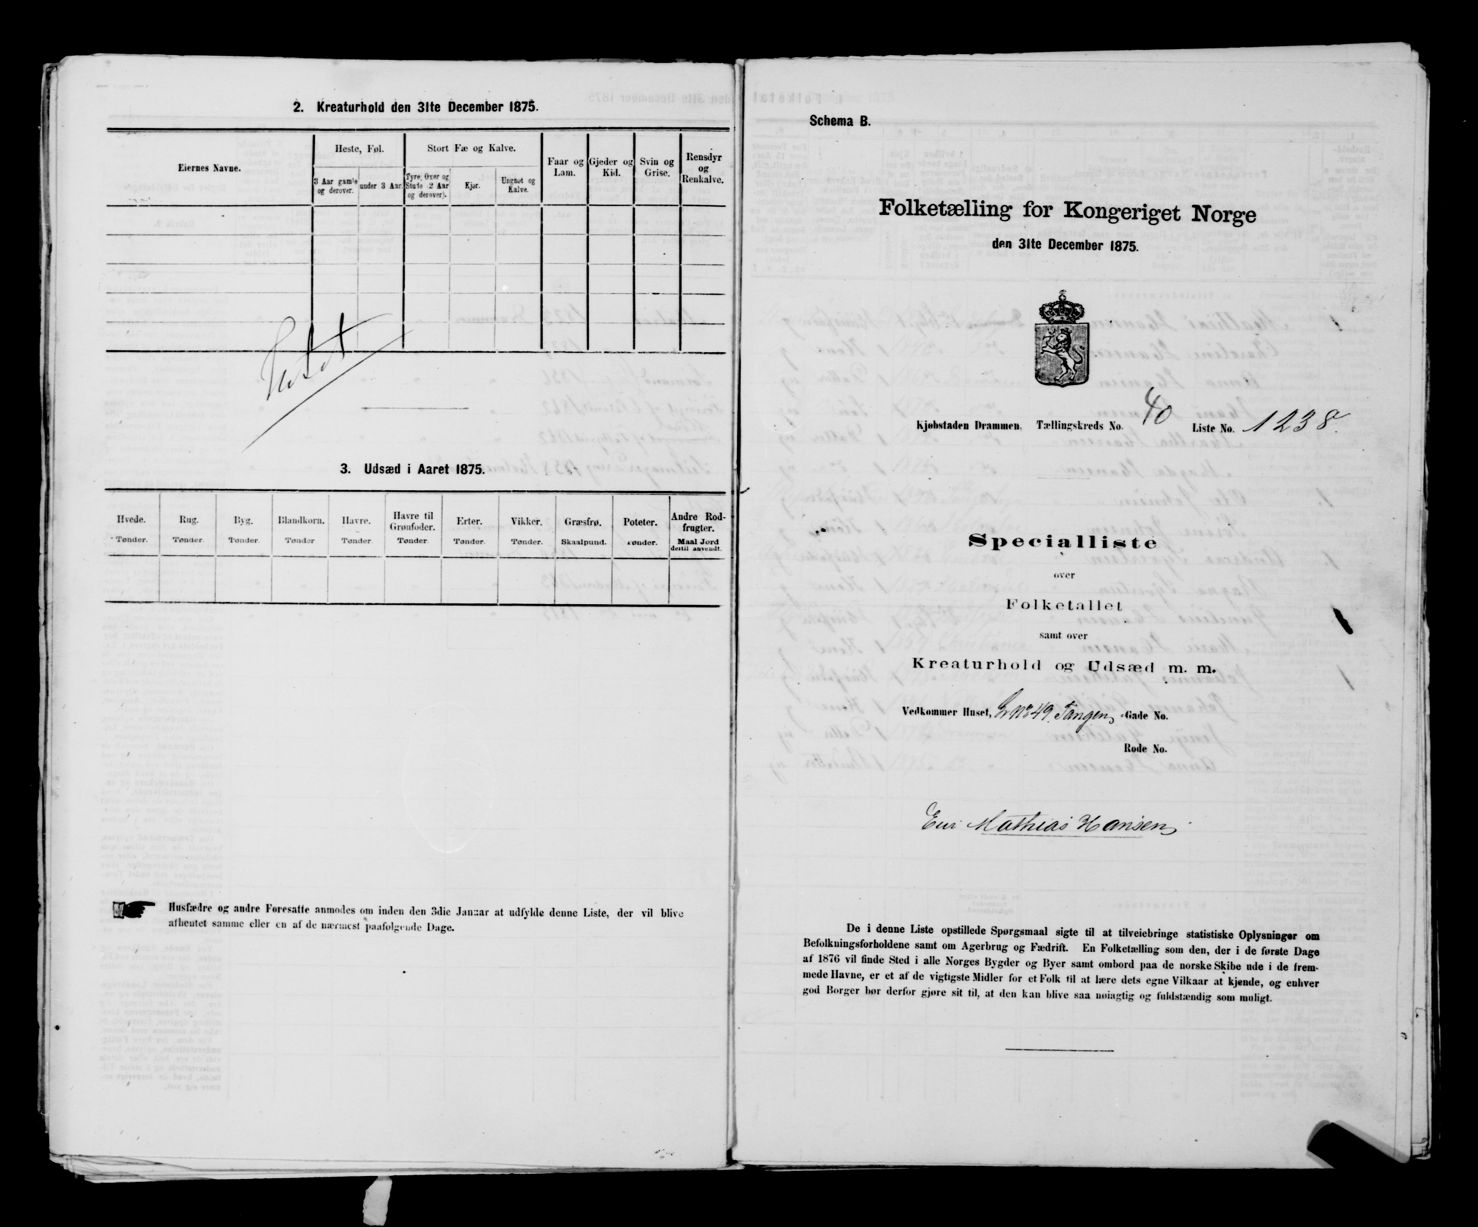 2. Kreaturhold den 31te December 1875.
Eiernes Navne.
Heste, Føl.
3 Aar gamle og derover.
under 3 Aar.
Stort Fæ og Kalve.
Tyre, Oxer og Stude (2 Aar og derover).
Kjør.
Ungnøt og Kalve.
Faar og Lam.
Gjeder og Kid.
Svin og Grise.
Rensdyr og Renkalve.
3. Udsæd i Aaret 1875.
Hvede. Tønder.
Rug. Tønder.
Byg. Tønder.
Blandkorn. Tønder
Havre. Tønder.
Havre til Grønfoder. Tønder
Erter. Tønder.
Vikker. Tønder.
Græsfrø. Skaalpund.
Poteter. Tønder.
Andre Rodfrugter. Maal Jord dertil anvendt.
Husfædre og andre Foresatte anmodes om inden den 3die Januar at udfylde denne Liste, der vil blive
afhentet samme eller en af de nærmest paafølgende Dage.
Schema B.
Folketælling for Kongeriget Norge
den 31te December 1875.
Kjøbstaden Drammen. Tællingskreds No. 40 Liste No. 1238.
Specialliste
over
Folketallet
samt over
Kreaturhold og Udsæd m. m.
Vedkommer Huset, Gr No 49 Tangen, Gade No.
Rode No.
Eier Mathias Hansen
De i denne Liste opstillede Spørgsmaal sigte til at tilveiebringe statistiske Oplysninger om
Befolkningsforholdene samt om Agerbrug og Fædrift. En Folketælling som den, der i de første Dage
af 1876 vil finde Sted i alle Norges Bygder og Byer samt ombord paa de norske Skibe ude i de frem-
mede Havne, er et af de vigtigste Midler for et Folk til at lære dets egne Vilkaar at kjende, og enhver
god Borger bør derfor gjøre sit til, at den kan blive saa nøiagtig og fuldstændig som muligt.